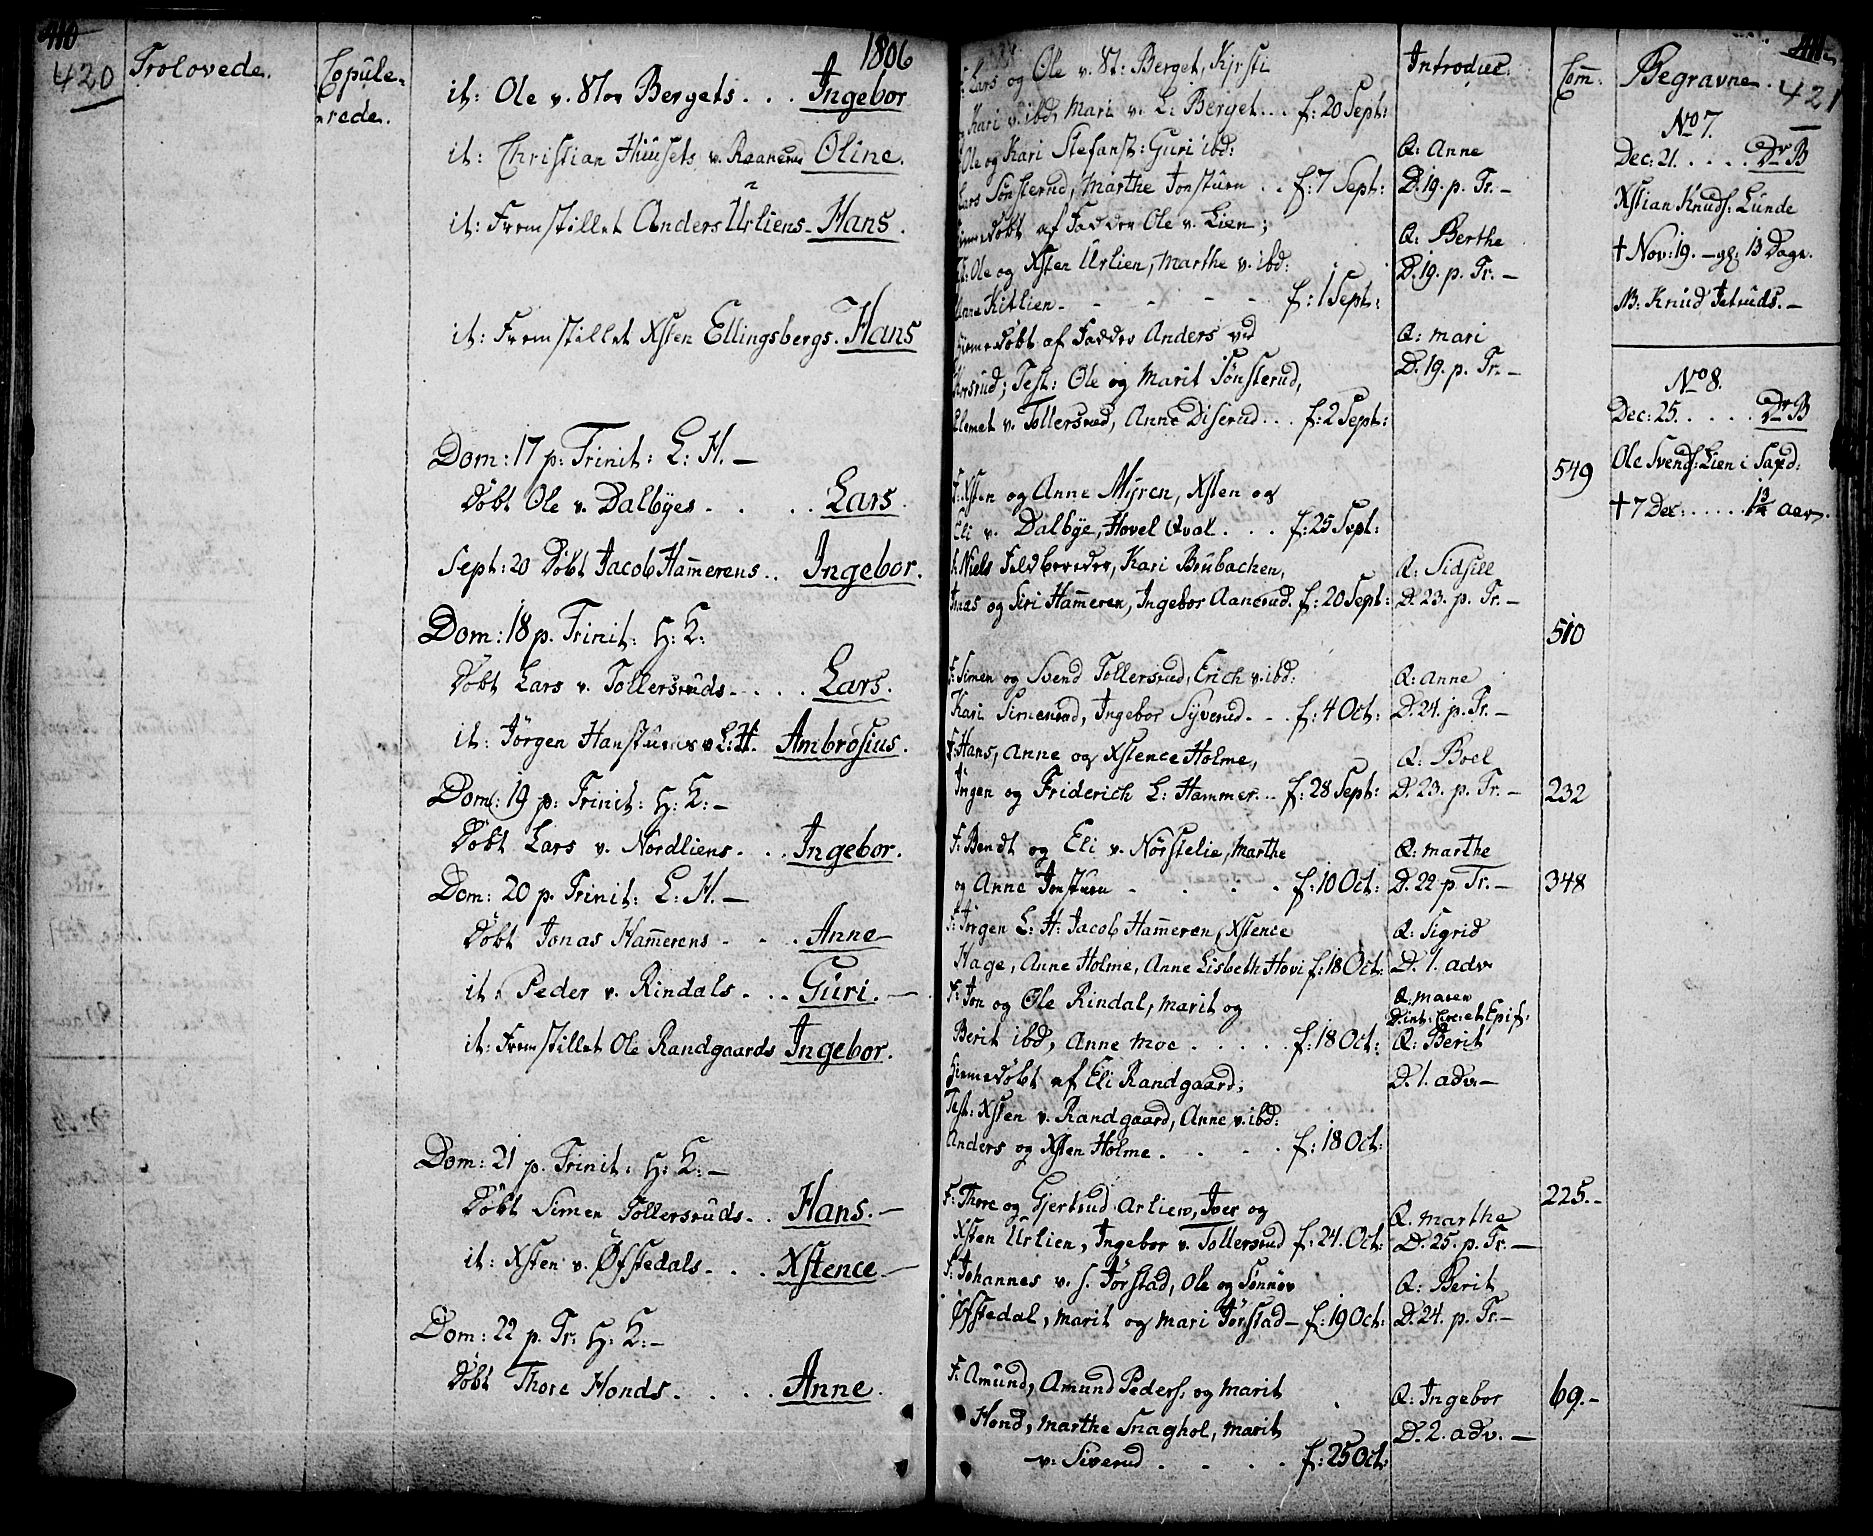 410
420
Trolovede.
Copule-
rede.
1806
it: Ole v. Stor Bergets . . . Ingebor
it: Christian Huusets v. Raanerud Oline.
it: Fremstillet Anders Ürliens - Hans.
it: Fremstillet Xsten Ellingsbergs. Hans
Dom: 17 p: Trinit: L: H. —
Döbt Ole v. Dalbÿes . . . . Lars.
Sept: 20 Döbt Jacob Ham̅erens . . Ingebor.
Dom: 18 p. Trinit: H: K:
Döbt Lars v. Tollersruds . . . . Lars.
it: Jörgen Hanstuens v L: H. Ambrosius.
Dom: 19 p: Trinit: H: K: —
Döbt Lars v. Nordliens. . . Ingebor.
Dom: 20 p. Trinit: L: H. —
Döbt Jonas Ham̅erens . . . Anne
it: Peder v. Rindals . . . Guri. —
it: Fremstillet Ole Randgaards Ingebor.
Dom: 21 p. Trinit: H: K: —
Döbt Simen Tollersruds . . Hans. —
it: Xsten v. Øfstedals . . . Xstence. —
Dom: 22 p. Tr: H: K: —
Döbt Thore Honds . . . . Anne.
F: Lars og Ole v. St: Berget, Kirsti
Kari v. ibd, Mari v. L: Berget . . . f: 20 Sept:
Ole og Kari Stefanst: Guri ibd:
Lars Sönsterud, Marthe Jonstuen . . f: 7 Sept:
Hiemedöbt af Fadder Ole v. Lien;
T: Ole og Xsten Urlien, Marthe v. ibd:
Anne Kitlien - - - - - f: 1 Sept:
Hiemedöbt af Fadder Anders ved
Test: Ole og Marit Sönsterud,
Clemet v. Tollersrud, Anne Diserud . . . f: 2 Sept:
F: Xsten og Anne Myren, Xsten og
Eli v. Dalbÿe, Hovel Qval . . . f: 25 Sept:
F: Niels Feldbereder, Kari Brubachen,
Jonas og Siri Ham̅eren, Ingebor Aanerud. f: 20 Sept:
F: Simen og Svend Tollersrud, Erich v. ibd:
Kari Simenrud, Ingebor Syverud . . . f: 4 Oct:
F: Hans, Anne og Xstence Holme,
Ingen og Friderich L: Hammer . . f: 28 Sept:
F: Bendt og Eli v. Nörstelie, Marthe
og Anne Jonstuen - . . . . f: 10 Oct:
F: Jörgen L: H: Jacob Ham̅eren, Xstence
Hage, Anne Holme, Anne Lisbeth Hovi f: 18 Oct:
F: Jon og Ole Rindal, Marit og
Berit ibd, Anne Moe . . . . . f: 18 Oct:
Hiemedöbt af Eli Randgaard;
Test: Xsten v. Randgaard, Anne v. ibd:
Anders og Xsten Holme . . . . f: 18 Oct:
F: Thore og Gjertrud Urlien, Iver og
Xsten Urlien, Ingebor v. Tollersrud f: 24. Oct:
F: Johannes v. S. Jörstad, Ole og Sönnöv
Øfstedal, Marit og Mari Jörstad — f: 19 Oct:
F: Amund, Amund Peders: og Marit
Hond, Marthe Snaghol, Marit
v: Siverud . . . . f: 25 Oct:
Introduc:
Q: Anne
D. 19. p. Tr. —
Q: Berthe
D. 19. p. Tr. —
Q: Mari
D. 19. p. Tr. —
Q: Sidsill
D. 23. p. Tr. —
Q: Anne
D. 24. p. Tr. —
Q: Boel
D. 23. p. Tr. —
Q: Marthe
D. 22 p Tr. —
Q: Sigrid
D. 1. adv.
Q: Maren
D. int: Circ: et Epif:
Q: Berit
D. 1. adv. —
Q. Marthe
D. 25. p. Tr. —
Q: Berit
D. 24. p. Tr. —
Q: Ingebor
D. 2. adv. —
Com̅:
549
510
232
348
225. —
69. —
411
421
Begravne.
No 7.
Dec: 21. . . . . Dr B
Xstian Knuds: Lunde
† Nov: 19. — gl: 13 Dage.
B: Knud Jetruds. —
No 8.
Dec: 25. . . . . Dr B
Ole Svends: Lien i
† 7 Dec: . . . . . 1¾ aar.